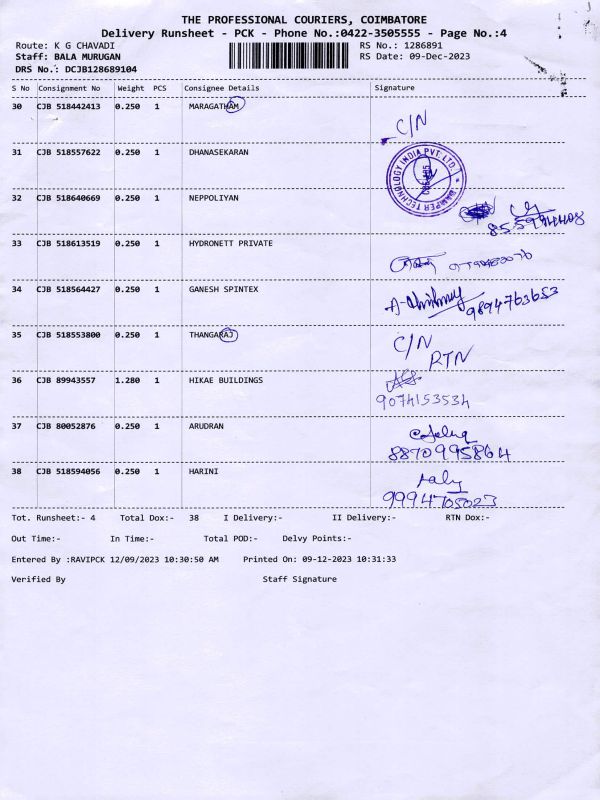 THE PROFESSIONAL COURIERS, COIMBATORE
Delivery Runsheet - PCK - Phone No.:0422-3505555 - Page No.:4
Route: K G CHAVADI RS No.: 1286891
Staff: BALA MURUGAN RS Date: 09-Dec-2023
DRS No.: DCJB128689104
S No Consignment No Weight PCS Consignee Details Signature
30 CJB 518442413 0.250 1 MARAGATHAM
C/N
31 CJB 518557622 0.250 1 DHANASEKARAN
TECHNOLOGY INDIA PVT. LTD.
32 CJB 518640669 0.250 1 NEPPOLIYAN
33 CJB 518613519 0.250 1 HYDRONETT PRIVATE
34 CJB 518564427 0.250 1 GANESH SPINTEX
9894763653
35 CJB 518553800 0.250 1 THANGARAJ
C/N
RTN
36 CJB 89943557 1.280 1 HIKAE BUILDINGS
9074153534
37 CJB 80052876 0.250 1 ARUDRAN
8870995864
38 CJB 518594056 0.250 1 HARINI
9994705023
Tot. Runsheet:- 4 Total Dox:- 38 I Delivery:- II Delivery:- RTN Dox:-
Out Time:- In Time:- Total POD:- Delvy Points:-
Entered By :RAVIPCK 12/09/2023 10:30:50 AM Printed On: 09-12-2023 10:31:33
Verified By Staff Signature